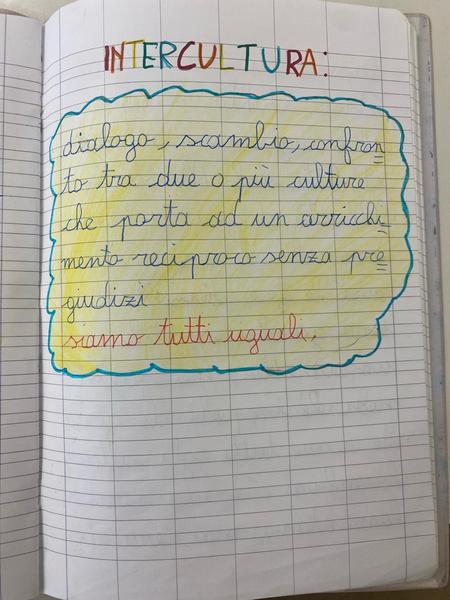 INTERCULTURA:
dialogo, scambio, confron=
to tra due o più culture
che porta ad un arricchi=
mento reciproco senza pre=
giudizi
siamo tutti uguali.